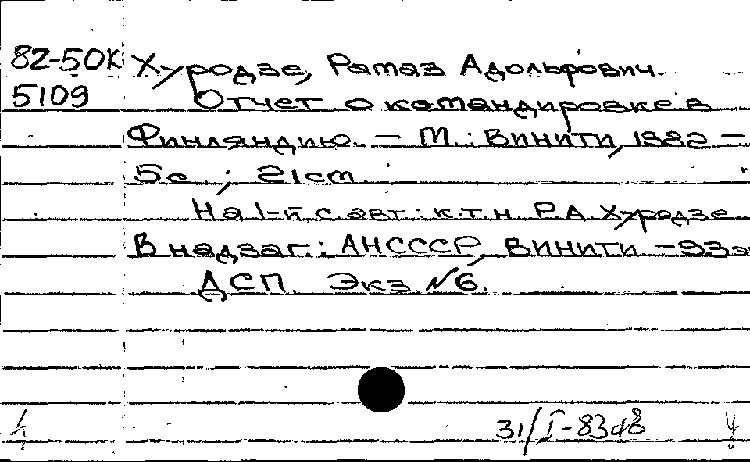 82-50К Хуродзе, Рамаз Адольфович.
5109 Отчет о командировке в
Финляндию. – М.: ВИНИТИ, 1982 –
5с.; 21cm.
На 1-й с. авт.: к.т.н. Р.А. Хуродзе
В надзаг.: АН СССР, ВИНИТИ. – 93э
ДСП. Экз. №6.
31/I-83